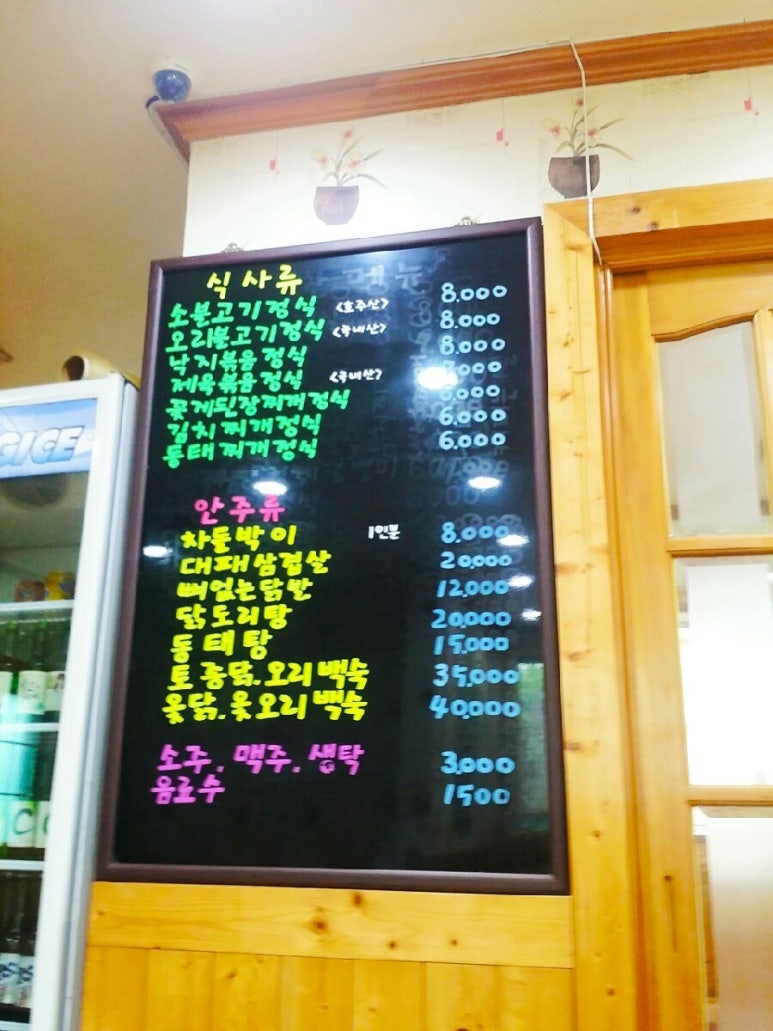 메뉴
식사류
소불고기정식 <호주산> 8.000
오리불고기정식 <국내산> 8.000
낙지볶음정식 8.000
제육볶음정식 <국내산>
꽃게된장찌개정식 6.000
김치찌개정식 6.000
동태찌개정식 6.000
안주류
차돌박이 1인분 8.000
대패삼겹살 20,000
뼈없는닭발 12,000
닭도리탕 20,000
동태탕 15,000
토종닭.오리백숙 35,000
옻닭.옻오리백숙 40,000
소주. 맥주. 생탁 3,000
음료수 1500
GICE